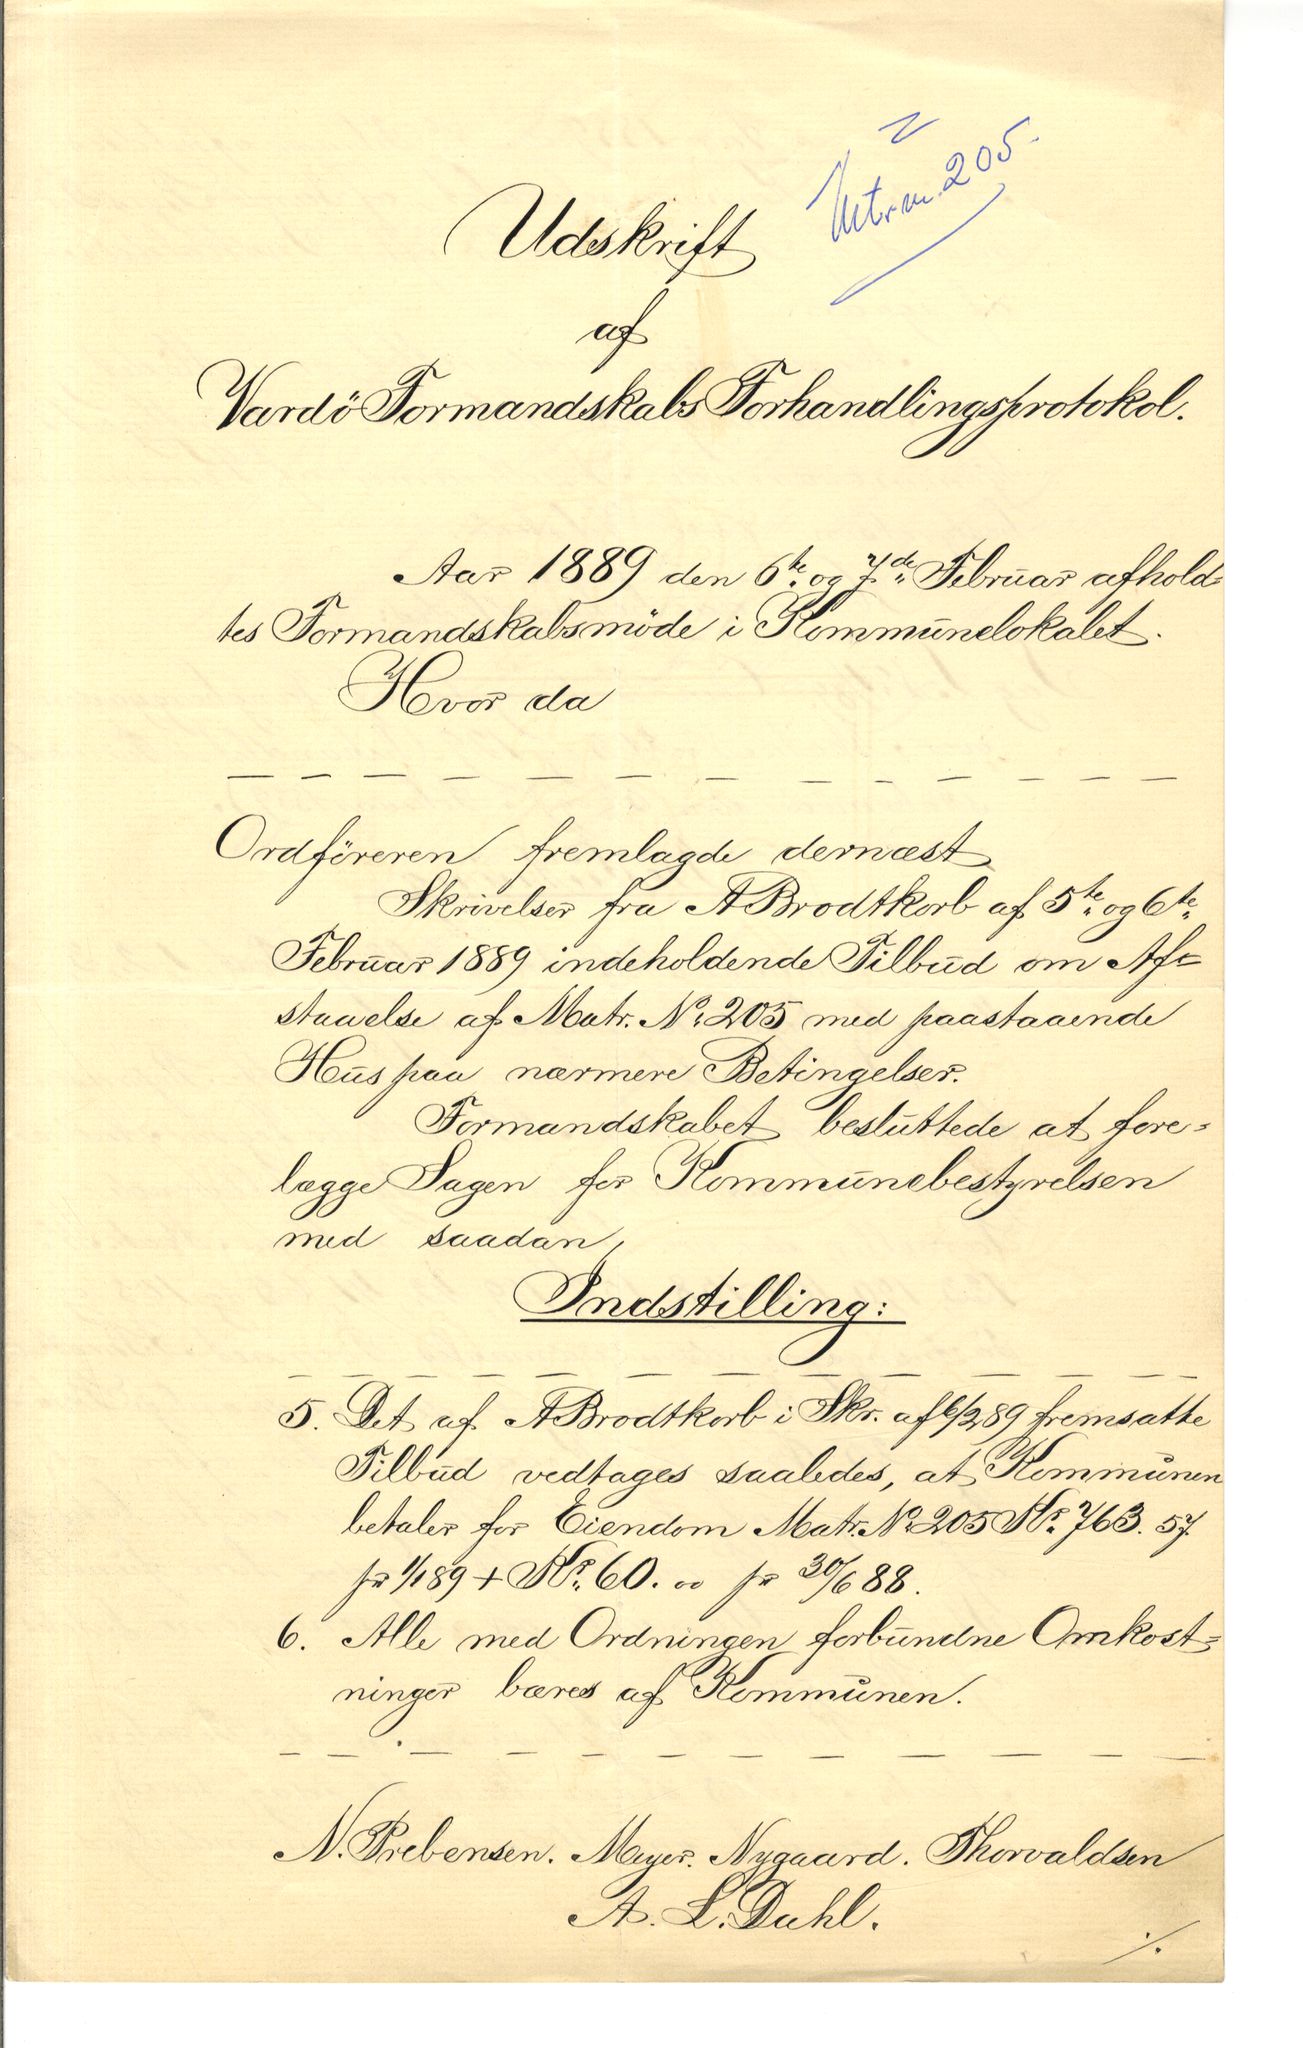 Mtr. nr. 205.
Udskrift
af
Vardö Formandskabs Forhandlingsprotokol.
Aar 1889 den 6te og 7de Februar afhold-
tes Formandskabsmöde i Kommunelokalet.
Hvor da
Ordföreren fremlagde dernæst
Skrivelser fra A Brodtkorb af 5te og 6te
Februar 1889 indeholdende Tilbud om Af-
staaelse af Matr. No 205 med paastaaende
Hus paa nærmere Betingelser.
Formandskabet besluttede at fore-
lægge Sagen for Kommunebestyrelsen
med saadan
Indstilling:
5. Det af A Brodtkorb i Skr. af 6/2 89 fremsatte
Tilbud vedtages saaledes, at Kommunen
betaler for Eiendom Matr. No 205 Kr. 763. 57.
pr 1/1 89 + Kr. 60. 00 pr 30/6 88.
6. Alle med Ordningen forbundne Omkost-
ninger bæres af Kommunen.
N. Prebensen. Meyer. Nygaard. Thorvaldsen
A. L. Dahl.
./.